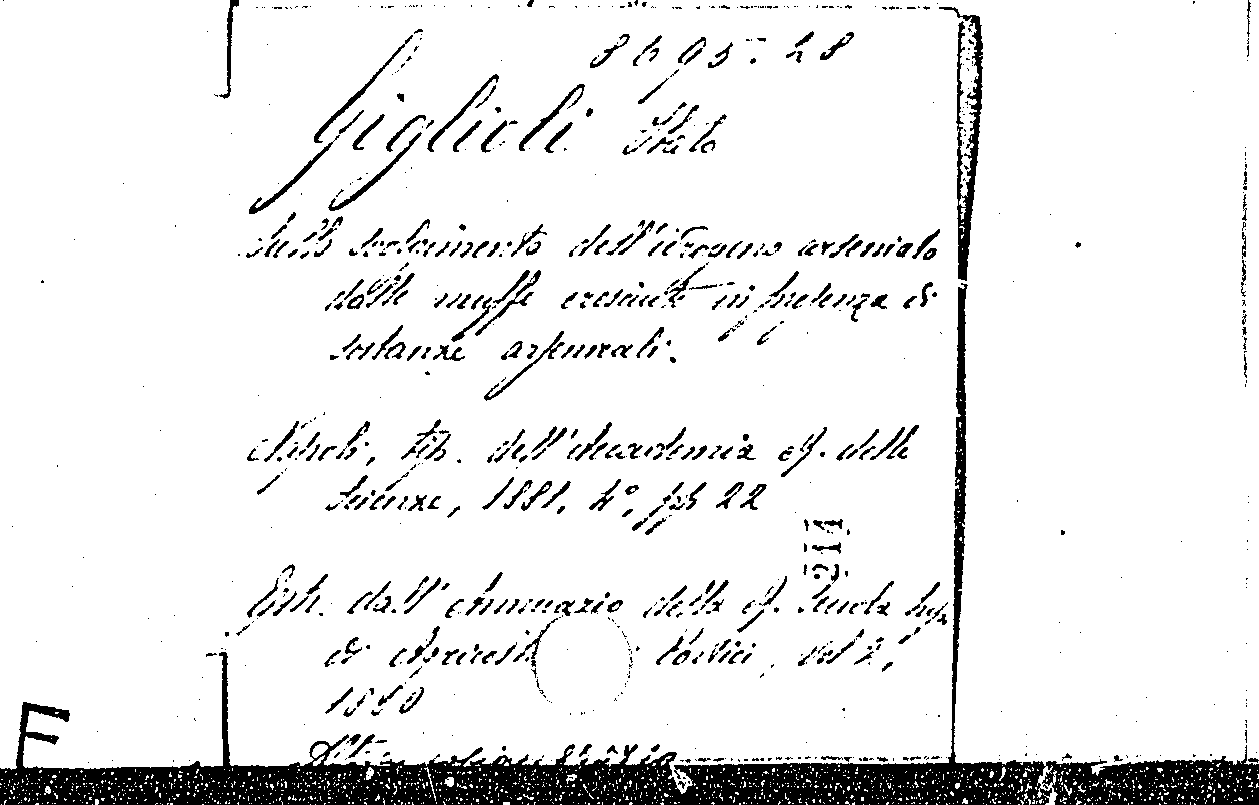 8695.28
Giglioli Italo
Dello svolgimento dell'idrogeno arseniato
dalle muffe cresciute in presenza di
sostanze arsenicali.
Napoli, tip. dell'Accademia R. delle
Scienze, 1881. 4°, pp 22
214
Estr. dall'Annuario della R. Scuola Sup.
di Agricolt Portici, vol 2,
1880
Altra
F